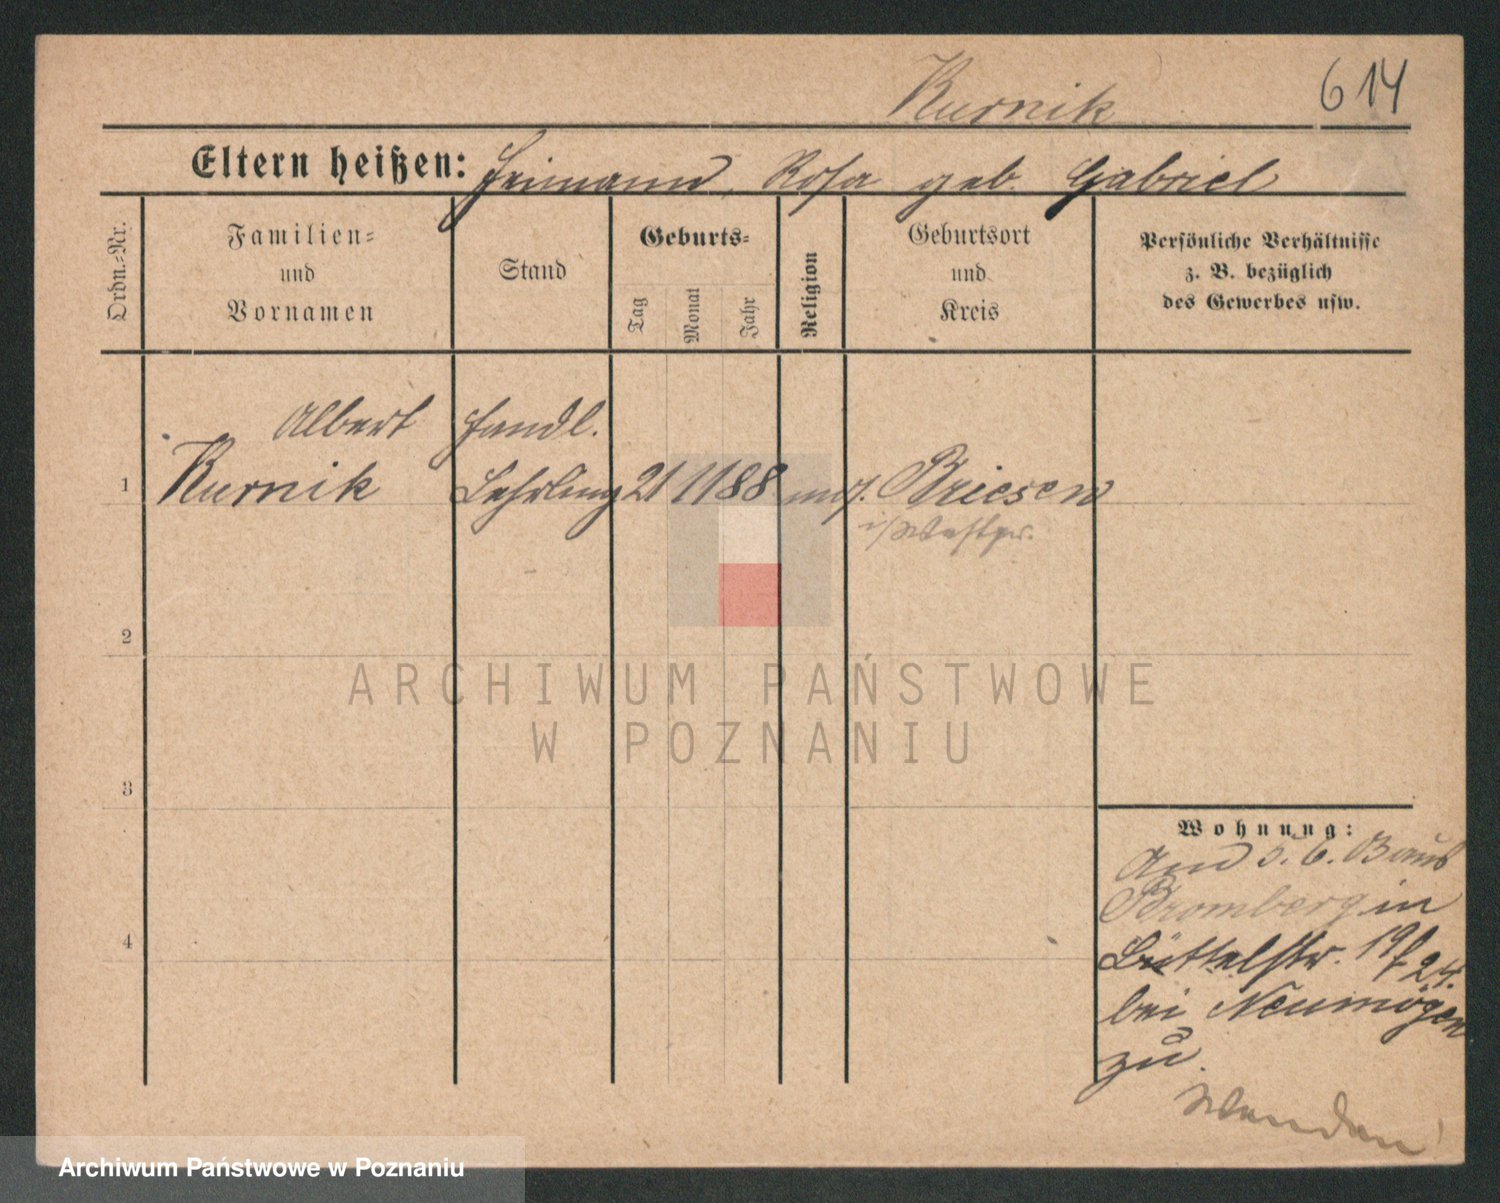 Kurnik 614
Eltern heißen: Heimann, Rosa geb. Gabriel
Ordn.-Nr.
Familien-
und
Vornamen
Stand
Geburts-
Tag
Monat
Jahr
Religion
Geburtsort
und
Kreis
Persönliche Verhältnisse
z. B. bezüglich
des Gewerbes usw.
Albert Handl.
1 Kurnik Lehrling 21 11 88 mos. Briesen
i/Westpr.
2
3
4
ARCHIWUM PAŃSTWOWE
W POZNANIU
Wohnung:
5. 6.
Bromberg in
Büttelstr. 19
bei Neumögen
zu.
Wenden!
Archiwum Państwowe w Poznaniu